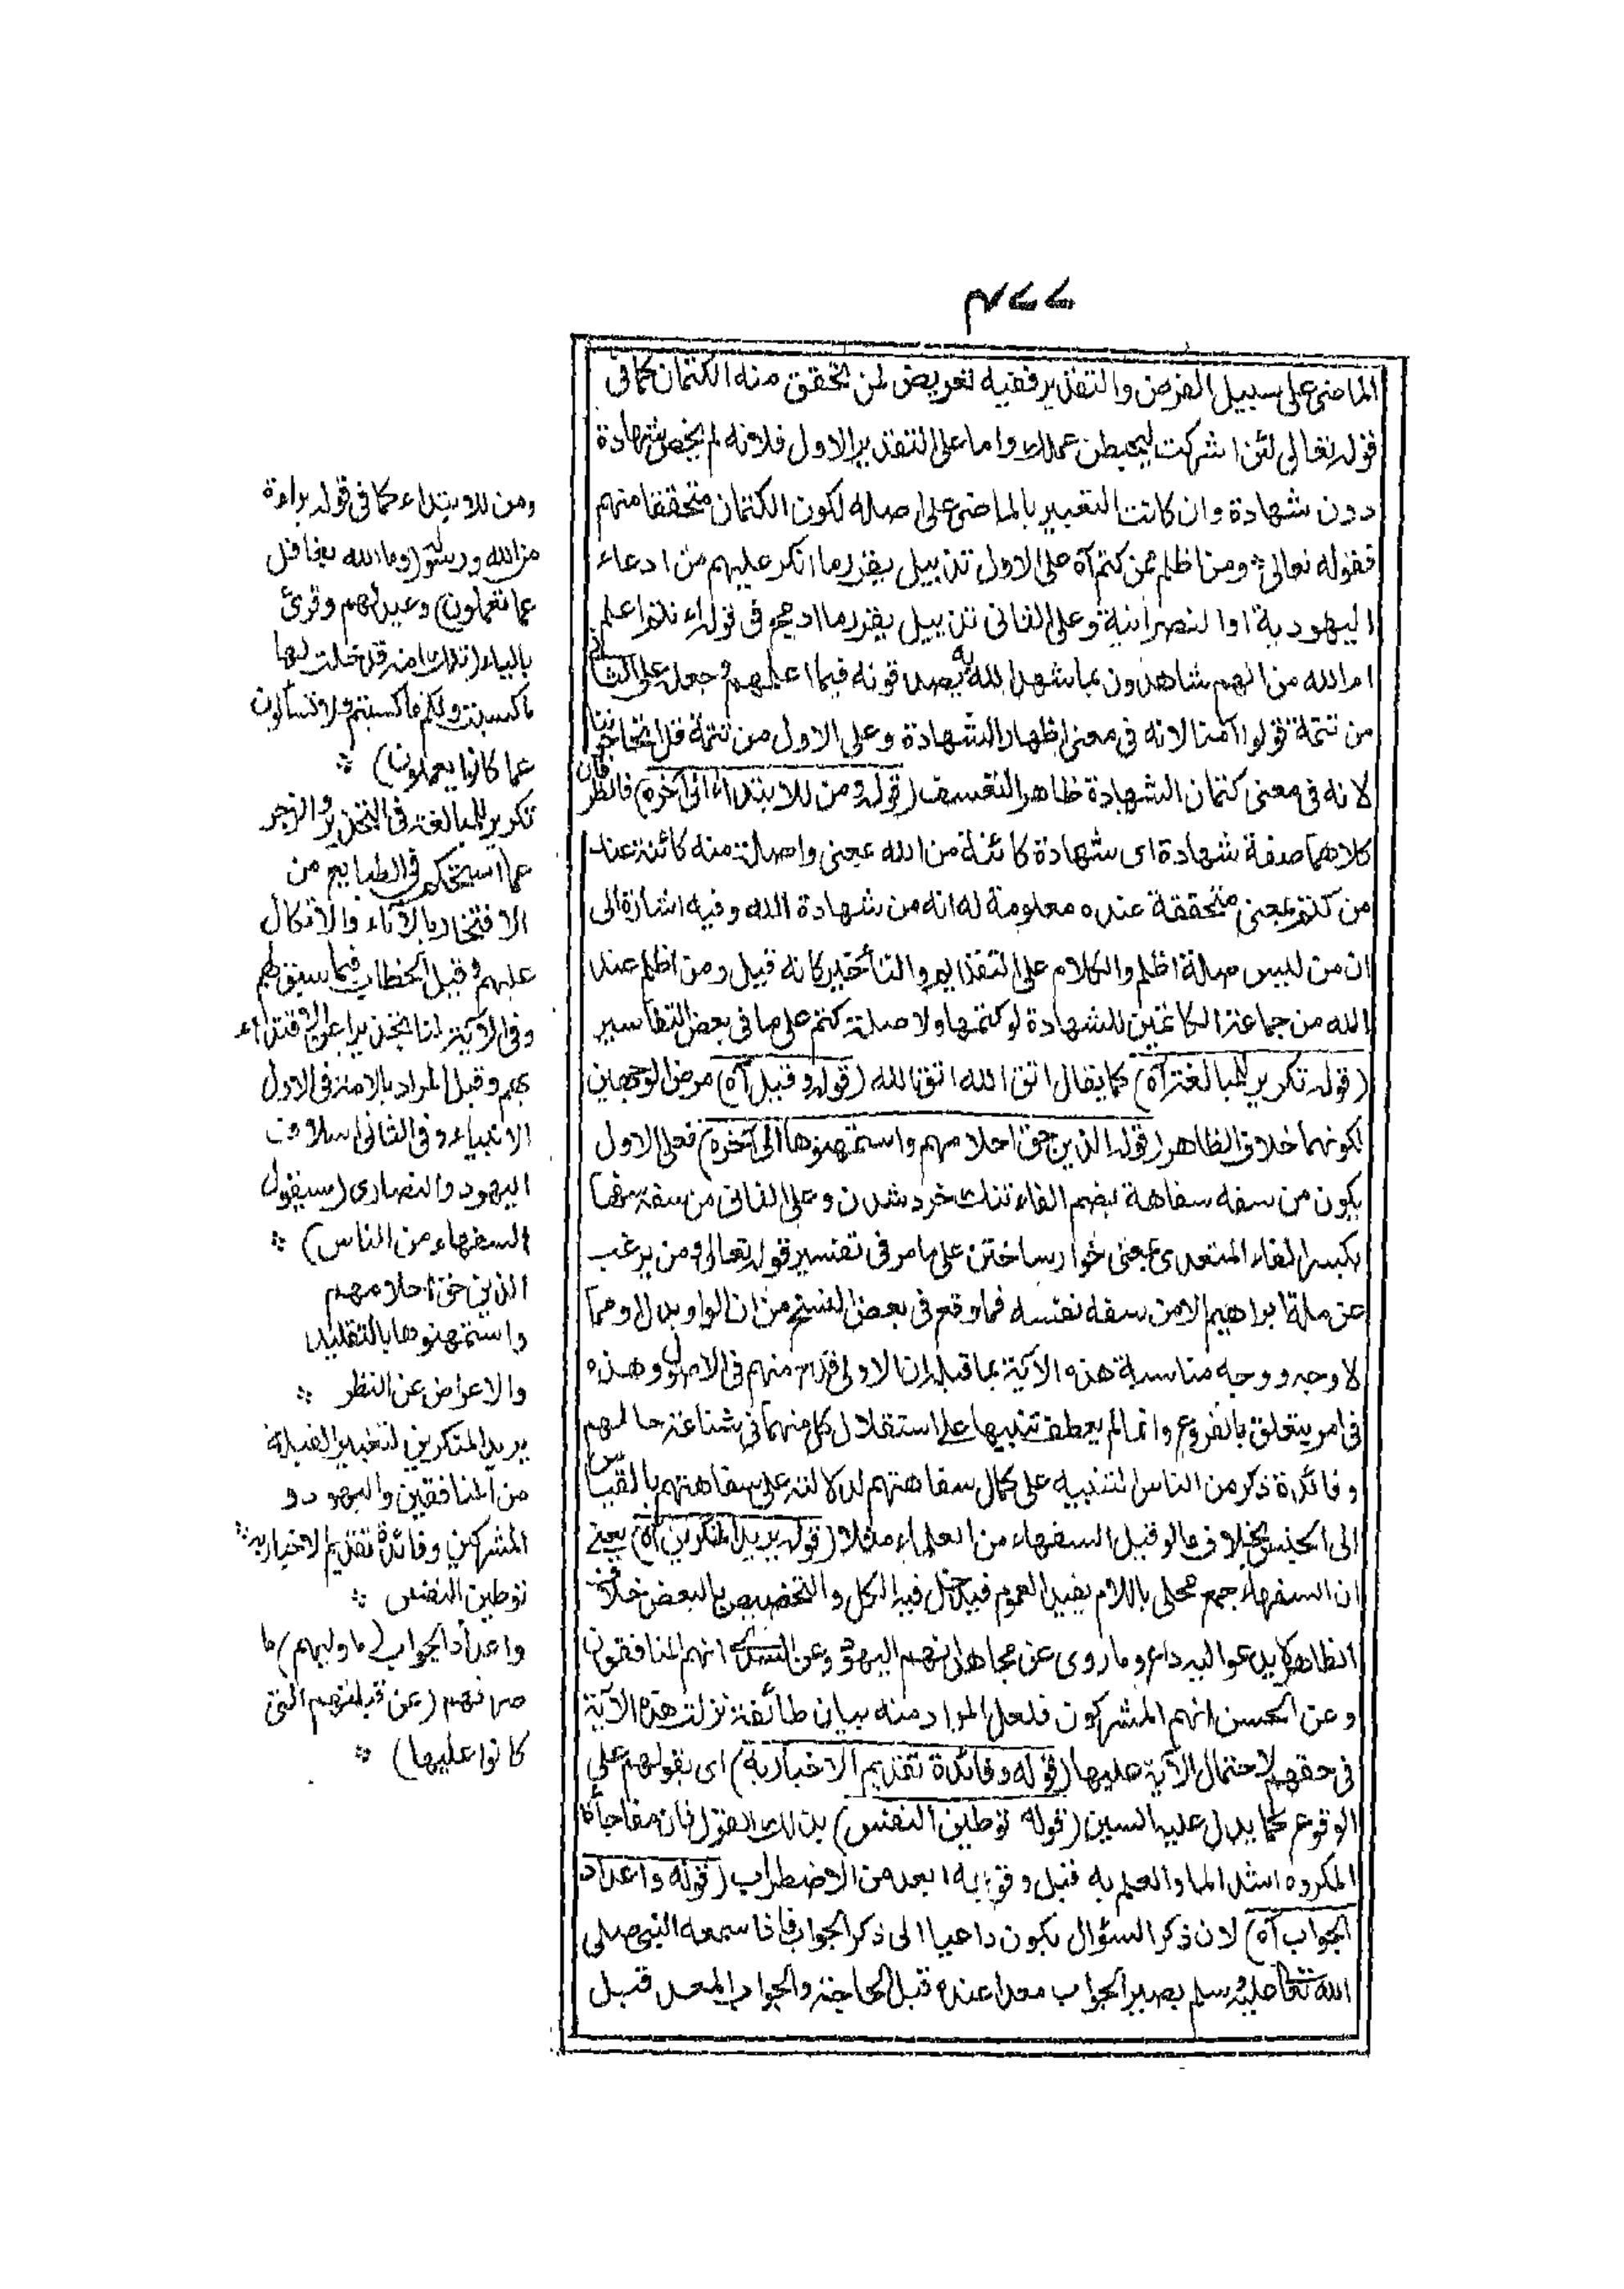 ٤٧٧
الماضى على سبيل الفرض والتقدير ففيه تعريض لمن تحقق منه الكتمان كما فى
قوله تعالى لئن اشركت ليحبطن عملك واما على التقدير الاول فلانه لم يخص بشهادة
دون شهادة وان كانت التعبير بالماضى على اصله لكون الكتمان متحققا منهم
فقوله تعالى ومن اظلم ممن كتم آه على الاول تذييل يقرر ما انكر عليهم من ادعاء
اليهودية او النصرانية وعلى الثانى تذييل يقرر ما ادمج فى قوله ءانتم اعلم
ام الله من انهم شاهدون بما شهد الله به يصدقونه فيما اعلمهم وجعله على الثانى
من تتمة قولوا آمنا لانه فى معنى اظهار الشهادة وعلى الاول من تتمة قل اتحاجوننا
لانه فى معنى كتمان الشهادة ظاهر التعسف (قوله ومن للابتداء الى آخره) فان الظرفان
كلاهما صفة شهادة اى شهادة كائنة من الله بمعنى واصلة منه كائنة عند
من كتم بمعنى متحققة عنده معلومة له انه من شهادة الله وفيه اشارة الى
ان من ليس صلة اظلم والكلام على التقديم والتأخير كانه قيل ومن اظلم عند
الله من جماعة الكاتمين للشهادة لو كتمها ولا صلة كتم على ما فى بعض التفاسير
(قوله تكرير للمبالغة آه) كما يقال اتق الله اتق الله (قوله وقيل آه) مرض الوجهين
لكونهما خلاف الظاهر (قوله الذين خف احلامهم واستمهنوها الى آخره) فعلى الاول
يكون من سفه سفاهة بضم الفاء تنك خرد شدن وعلى الثانى من سفه سفها
بكسر الفاء المتعدى بمعنى خوار ساختن على ما مر فى تفسير قوله تعالى ومن يرغب
عن ملة ابراهيم الا من سفه نفسه فما وقع فى بعض النسخ من ان الواو بدل او مما
لا وجه ووجه مناسبة هذه الآية بما قبله ان الاولى قدح منهم فى الاصول وهذه
فى امر يتعلق بالفروع وانما لم يعطف تنبيها على استقلال كل منهما فى شناعة حالهم
وفائدة ذكر من الناس التنبيه على كمال سفاهتهم لدلالته على سفاهتهم بالقياس
الى الجنس بخلاف ما لو قيل السفهاء من العلماء مثلا (قوله يريد المنكرين آه) يعنى
ان السفهاء جمع محلى باللام يفيد العموم فيدخل فيه الكل والتخصيص بالبعض خلاف
الظاهر لا يدعو اليه داع وما روى عن مجاهد انهم اليهود وعن السدى انهم المنافقون
وعن الحسن انهم المشركون فلعل المراد منه بيان طائفة نزلت هذه الآية
فى حقهم لا احتمال الآية عليها (قوله وفائدة تقديم الاخبار به) اى بقولهم على
الوقوع كما يدل عليه السين (قوله توطين النفس) بذلك القول فان مفاجأة
المكروه اشد الما والعلم به قبل وقوعه ابعد من الاضطراب (قوله واعداد
الجواب آه) لان ذكر السؤال يكون داعيا الى ذكر الجواب فاذا سمعه النبى صلى
الله تعالى عليه وسلم يصير الجواب معدا عنده قبل الحاجة والجواب المعد قبل
ومن للابتداء كما فى قوله براءة
من الله ورسوله (وما الله بغافل
عما تعملون) وعيد لهم وقرئ
بالياء (تلك امة قد خلت لها
ما كسبت ولكم ما كسبتم ولا تسألون
عما كانوا يعملون)
تكرير للمبالغة فى التحذير والزجر
عما استحكم فى الطبايع من
الافتخار بالآباء والاتكال
عليهم وقيل الخطاب فيما سبق لهم
وفى الآية لنا تحذيرا عن الاقتداء
بهم وقيل المراد بالامة فى الاول
الانبياء وفى الثانى اسلاف
اليهود والنصارى (سيقول
السفهاء من الناس)
الذين خف احلامهم
واستمهنوها بالتقليد
والاعراض عن النظر
يريد المنكرين لتغيير القبلة
من المنافقين واليهود و
المشركين وفائدة تقديم الاخبار به
توطين النفس
واعداد الجواب (ما وليهم) ما
صرفهم (عن قبلتهم التى
كانوا عليها)